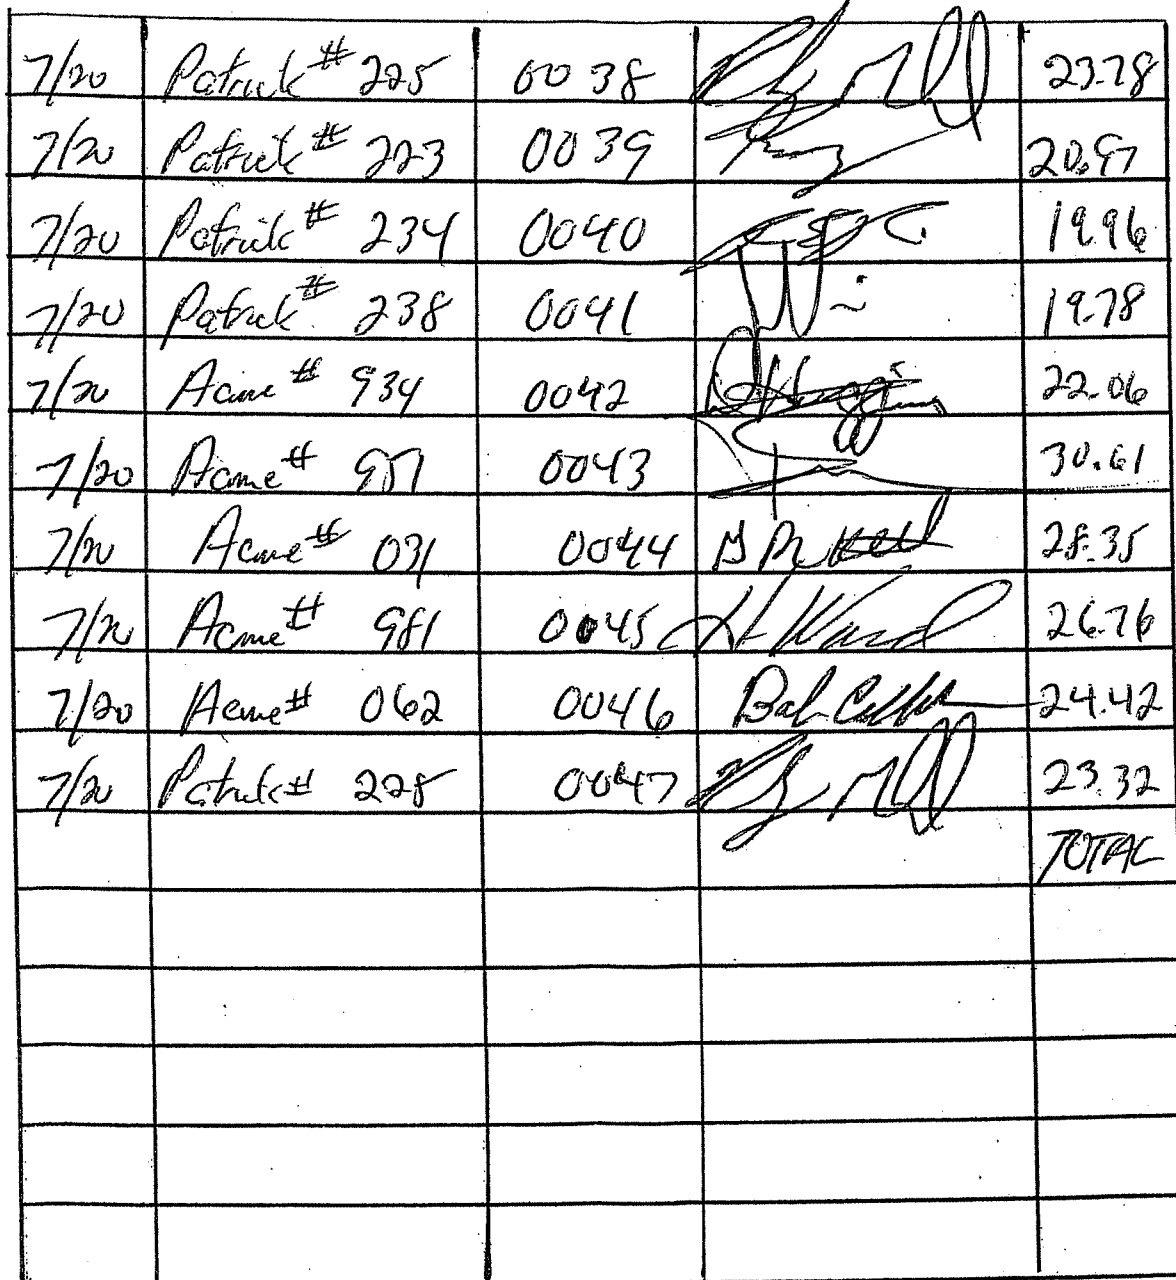 7/20 Patrick # 225 0038 23.78
7/20 Patrick # 223 0039 20.97
7/20 Patrick # 234 0040 19.96
7/20 Patrick # 238 0041 19.78
7/20 Acme # 934 0042 D Huggins 22.06
7/20 Acme # 0043 30.61
7/20 Acme # 031 0044 28.35
7/20 Acme # 981 0045 H Ward 26.76
7/20 Acme # 062 0046 Bob 24.42
7/20 Patrick # 225 0047 23.32
TOTAL